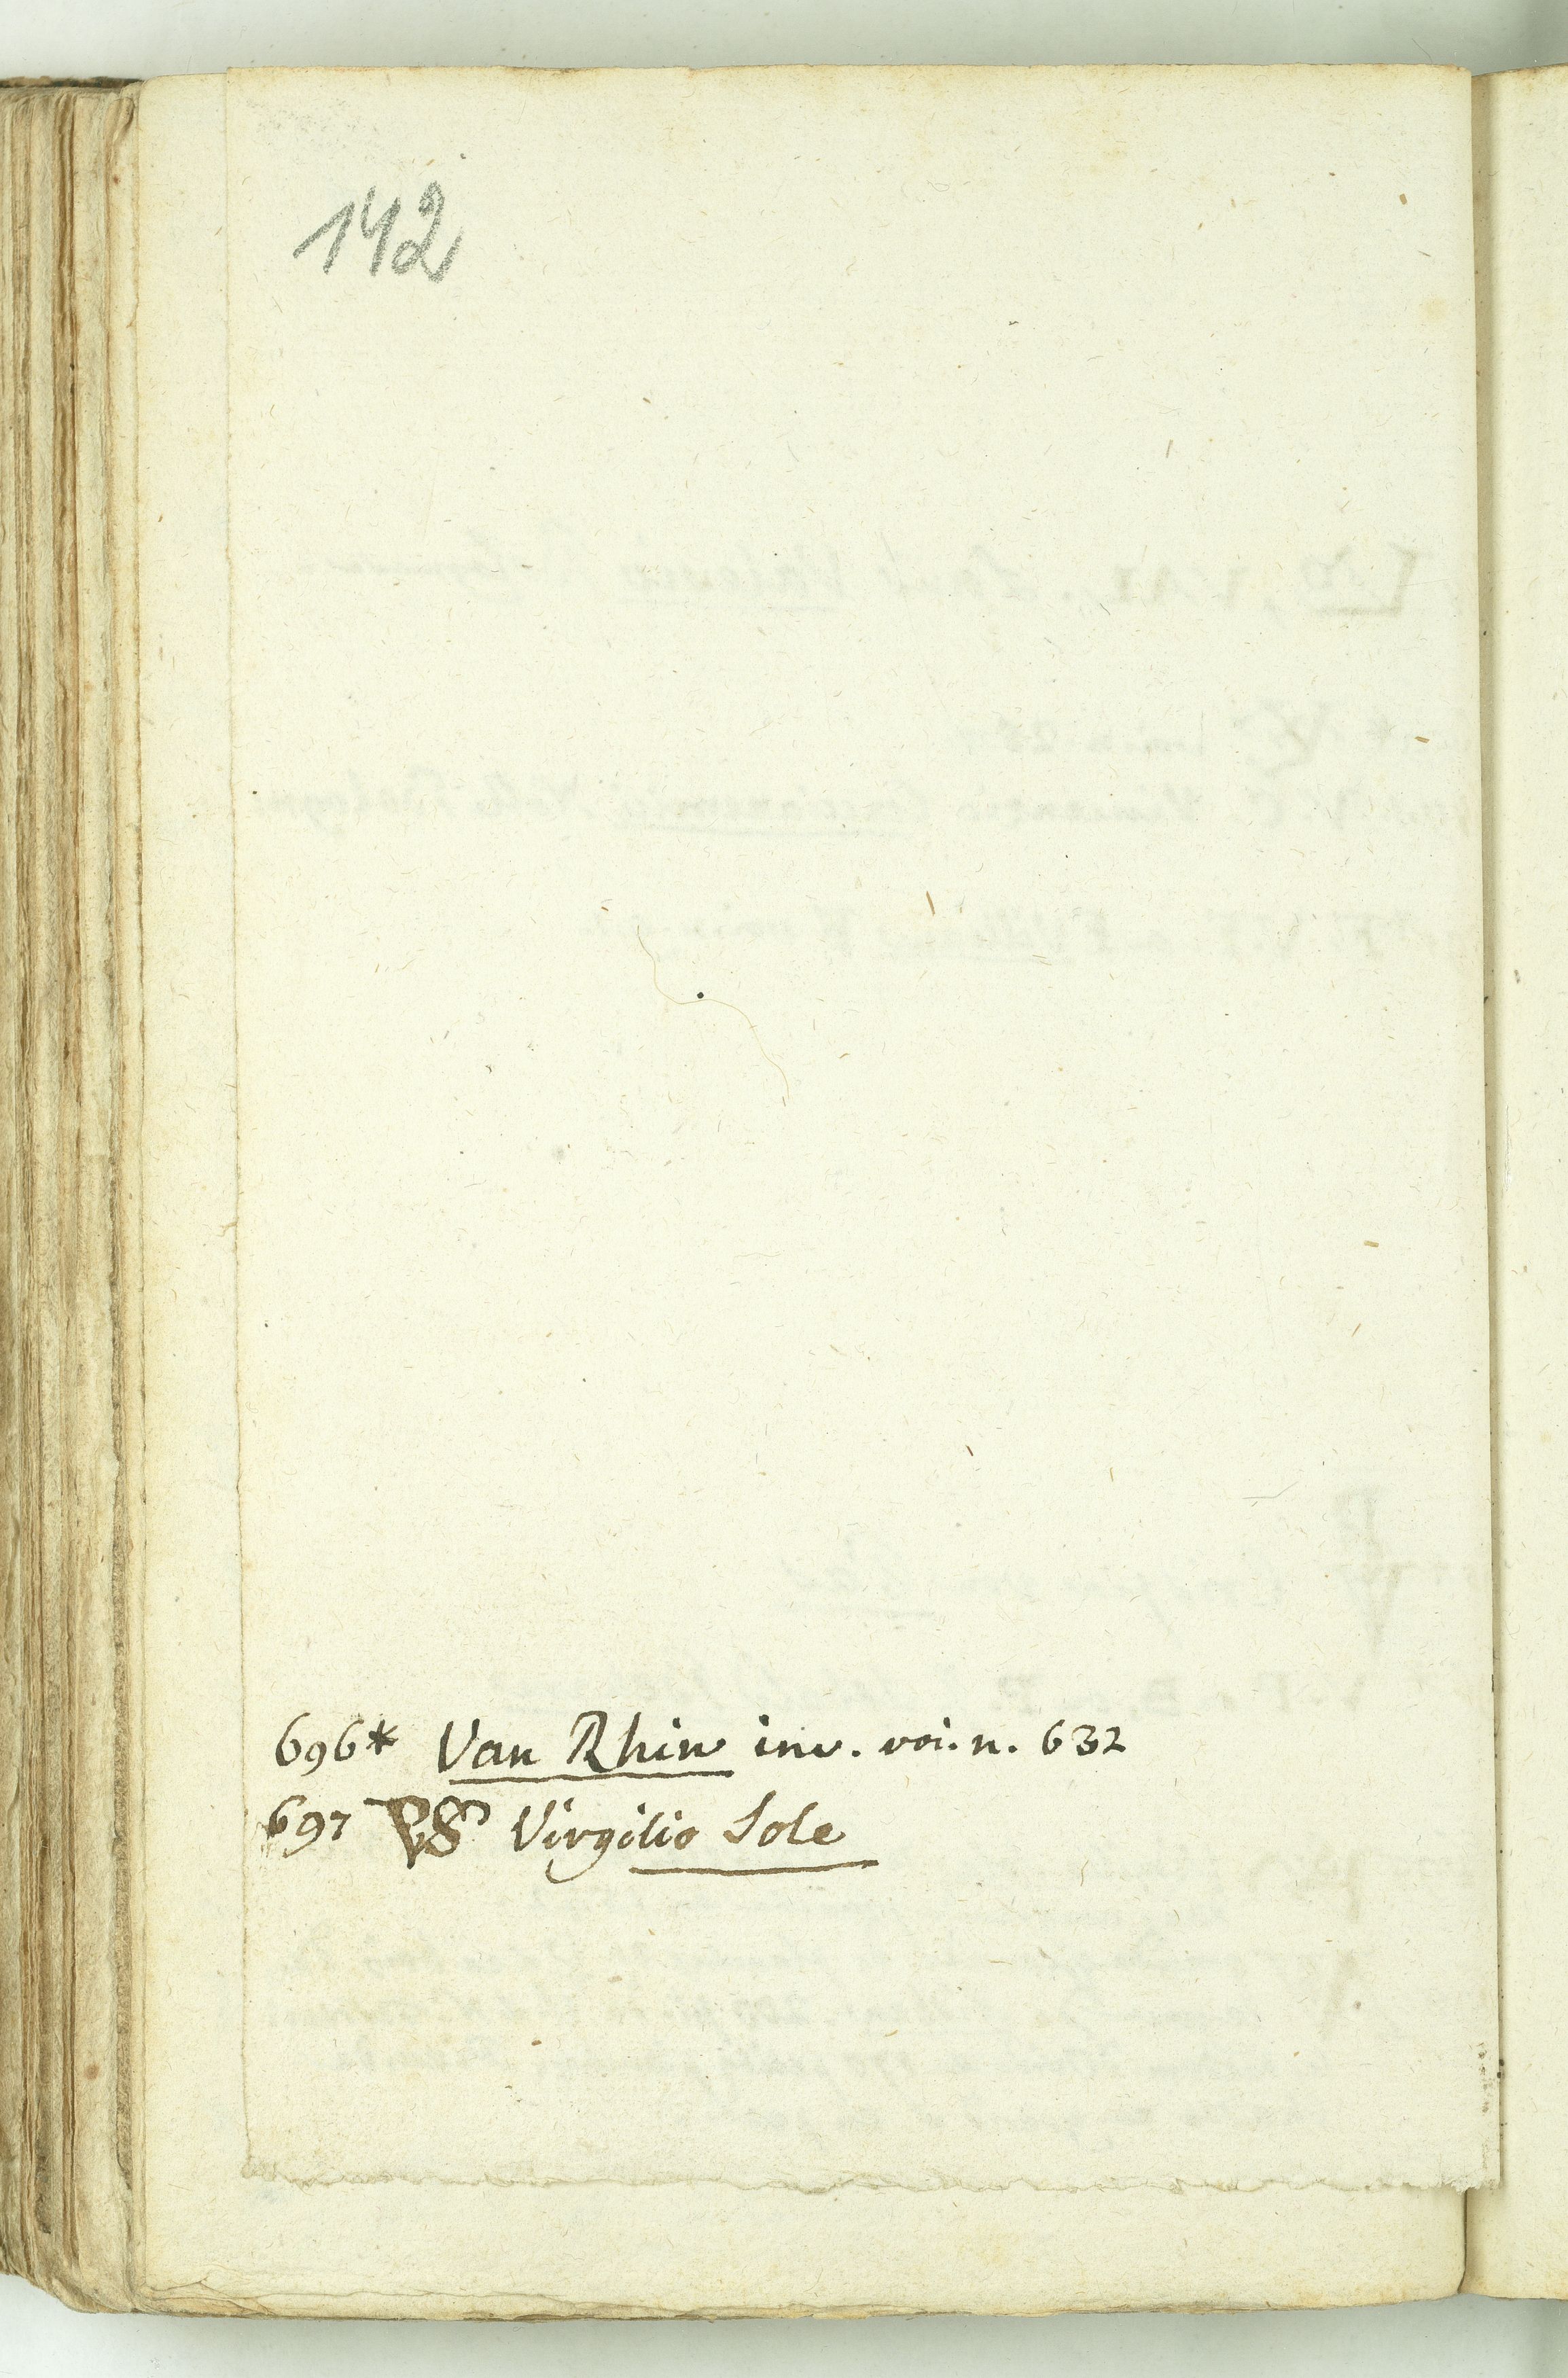 142
696* Van Rhin inv. voi. n. 632
697 VS Virgilio Sole